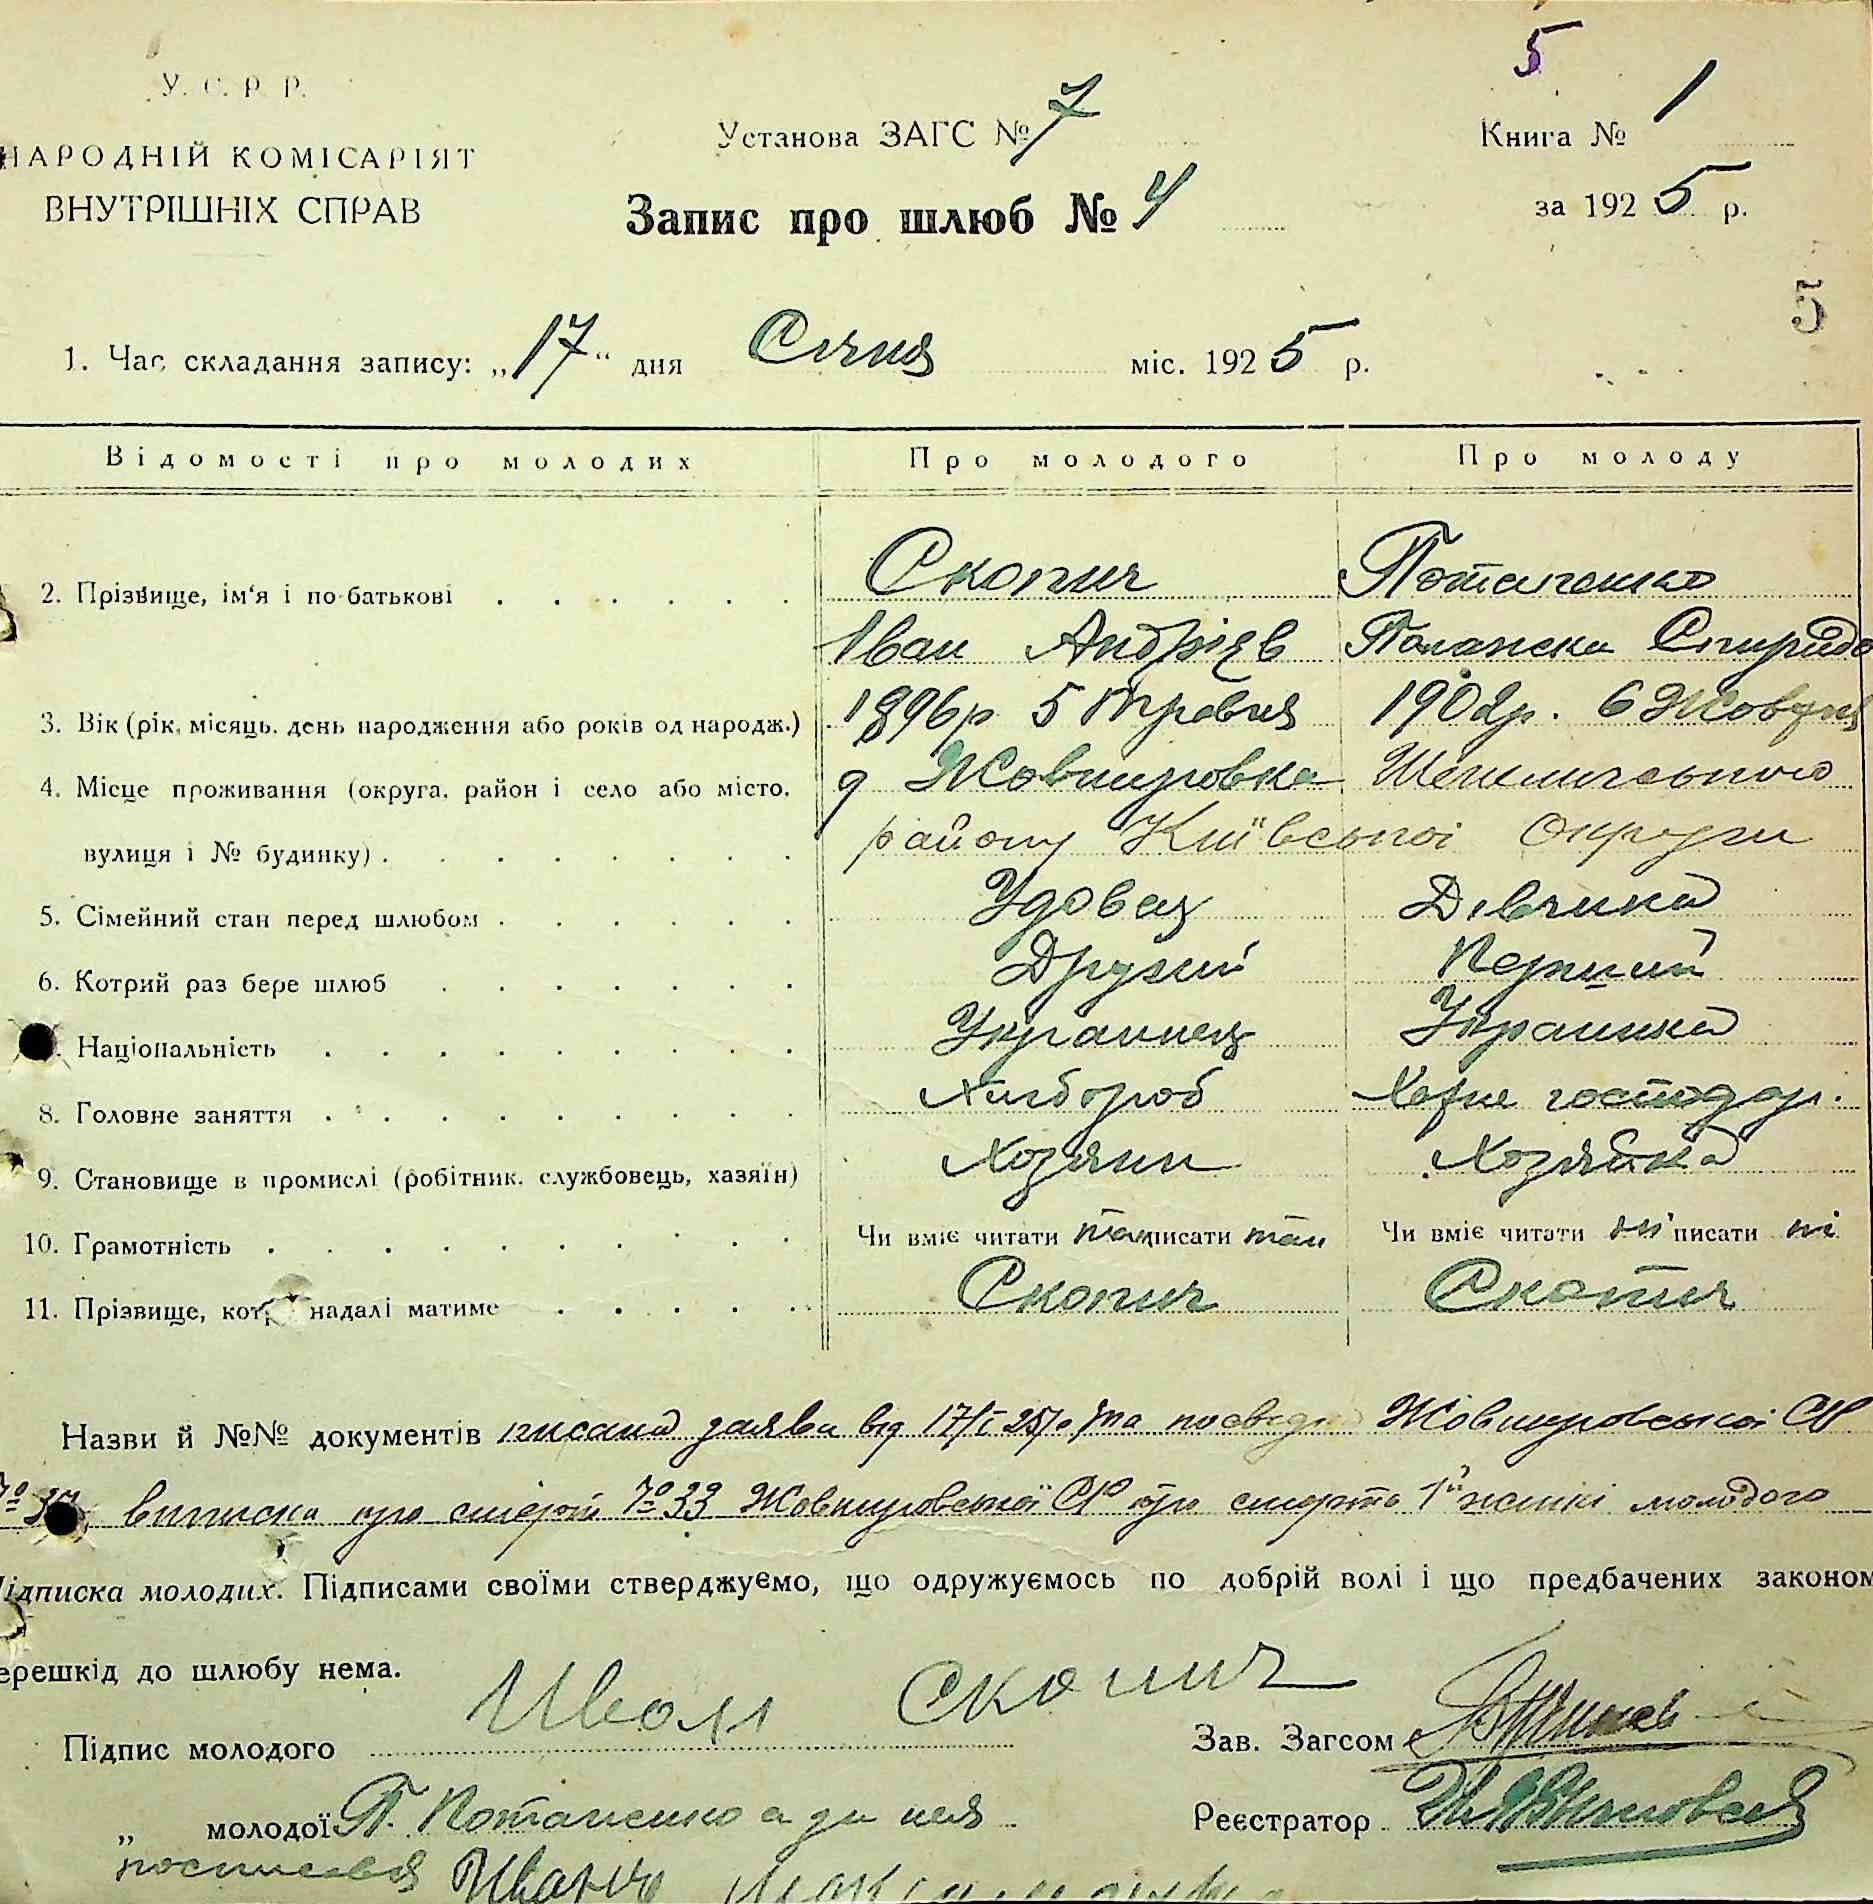 5
У. С. Р. Р.
НАРОДНІЙ КОМІСАРІЯТ
ВНУТРІШНІХ СПРАВ
Установа ЗАГС № 7
Книга № 1
Запис про шлюб № 4
за 1925 р.
5
1. Час складання запису: „17“ дня Січня міс. 1925 р.
Відомості про молодих Про молодого Про молоду
2. Прізвище, ім‘я і по-батькові Скопич Потапенко
Іван Андрієв Палажка Спиридо
3. Вік (рік, місяць, день народження або років од народж.) 1896р 5 Травня 1902р. 6 Жовтня
4. Місце проживання (округа, район і село або місто, Жовнировка
вулиця і № будинку) району Київської Округи
5. Сімейний стан перед шлюбом Удовец Дівчина
6. Котрий раз бере шлюб Другий Перший
Національність Украинец Украинка
8. Головне заняття Хлібороб господар.
9. Становище в промислі (робітник, службовець, хазяїн) Хозяин Хозяйка
10. Грамотність Чи вміє читати так писати так Чи вміє читати ні писати ні
11. Прізвище, кот надалі матиме Скопич Скопич
Назви й №№ документів писана заява від 17/I 25р та посвідч Жовнировської СР
№ 37, виписка про смерть № 33 Жовнировської СР про смерть 1й жінки молодого
ідписка молодих. Підписами своїми стверджуємо, що одружуємось по добрій волі і що предбачених законом
ерешкід до шлюбу нема.
Підпис молодого Иван Скопич
Зав. Загсом
„ молодої П. Потапенко а за нея
Реєстратор
росписався Иван